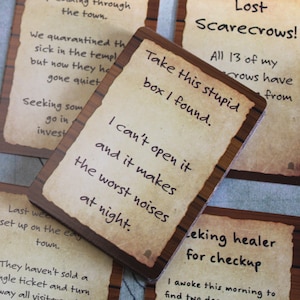 ing through
the town.
We quarantined th
sick in the templ
but now they ha
gone quiet
Seeking som
go in
invest
Lost
Scarecrows!
All 13 of my
crows have
Take this stupid
box I found.
I can't open it
and it makes
the worst noises
at night.
Last we
set up on the e
town.
They haven't sold a
gle ticket and turn
way all visitor
eking healer
for checkup
I awoke this morning to
find two de